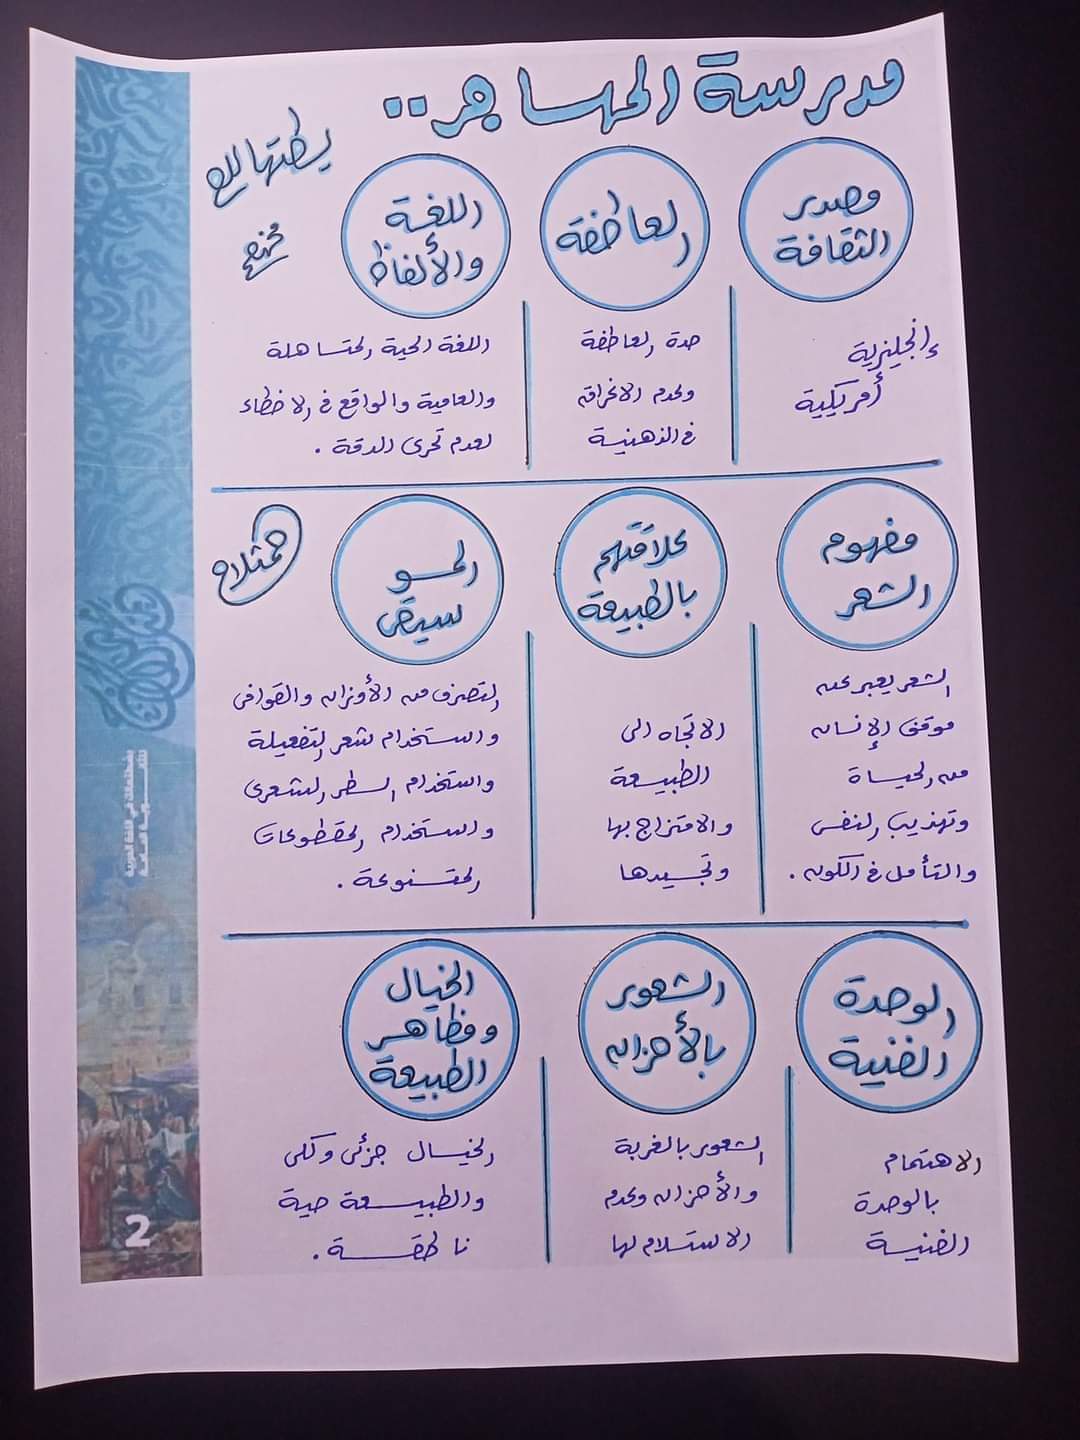 مدرسة المهاجر..
يبطتهالك
مصدر
الثقافة
العاطفة
اللغة
والألفاظ
إنجليزية
أمريكية
حدة العاطفة
وعدم الاغراق
في الذهنية
اللغة الحية المتساهلة
والعامية والواقع في الاخطاء
لعدم تحرى الدقة .
مفهوم
الشعر
علاقتهم
بالطبيعة
المو
سيقى
الشعر يعبر عن
موقف الإنسان
من الحياة
وتهذيب النفس
والتأمل في الكون .
الاتجاه الى
الطبيعة
والامتزاج بها
وتجسيدها
التصرف من الأوزان والقوافى
واستخدام شعر التفعيلة
واستخدام السطر الشعرى
واستخدام المقطوعات
المتنوعة .
الوحدة
الفنية
الشعور
بالأحزان
الخيال
ومظاهر
الطبيعة
الاهتمام
بالوحدة
الفنية
الشعور بالغربة
والأحزان وعدم
الاستسلام لها
الخيال جزئى وكلى
والطبيعة حية
ناطقة .
2